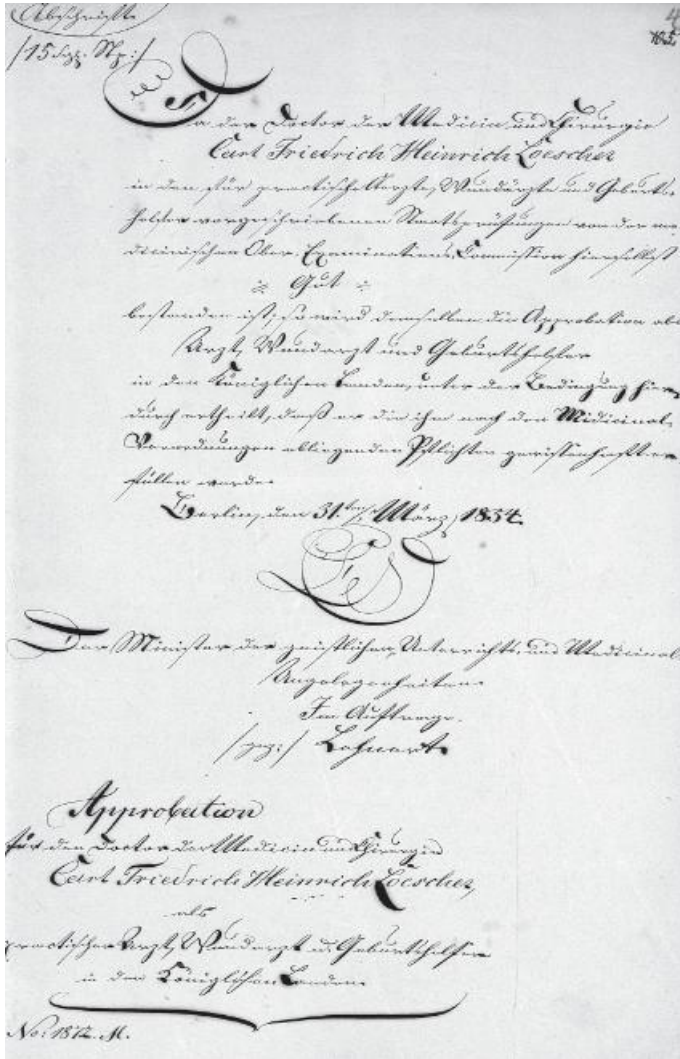 Abschrift
/15 Sgr. St:/
105.
Da der Doctor der Medicin und Chirurgie
Carl Friedrich Heinrich Loescher
in den für practische Aerzte, Wundärzte und Geburts-
helfer vorgeschriebenen Staatsprüfungen von der me-
dicinischen Ober-Examinations-Commission hierselbst
Gut
bestanden ist, so wird demselben die Approbation als
Arzt, Wundarzt und Geburtshelfer
in den Königlichen Landen, unter der Bedingung hier-
durch ertheilt, daß er die ihm nach den Medicinal-
Verordnungen obliegenden Pflichten gewissenhaft er-
füllen werde.
Berlin, den 31.ten März 1834.
Der Minister der geistlichen, Unterrichts- und Medicinal-
Angelegenheiten.
Im Auftrage.
Approbation
für den Doctor der Medicin und Chirurgie
Carl Friedrich Heinrich Loescher,
als
practischer Arzt, Wundarzt u. Geburtshelfer
in den Königlichen Landen.
No: 1812. M.